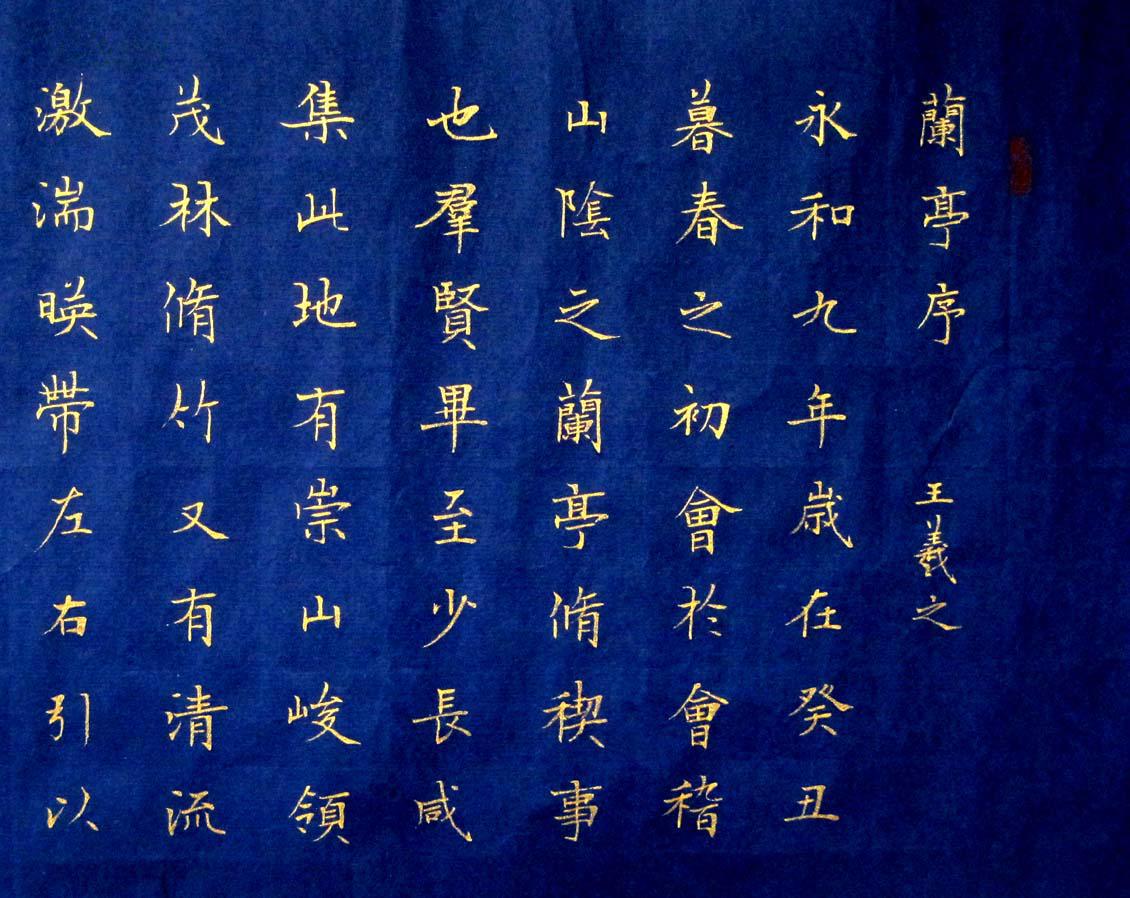 蘭亭序 王羲之
永和九年歲在癸丑
暮春之初會於會稽
山陰之蘭亭脩稧事
也羣賢畢至少長咸
集此地有崇山峻領
茂林脩竹又有清流
激湍暎帶左右引以